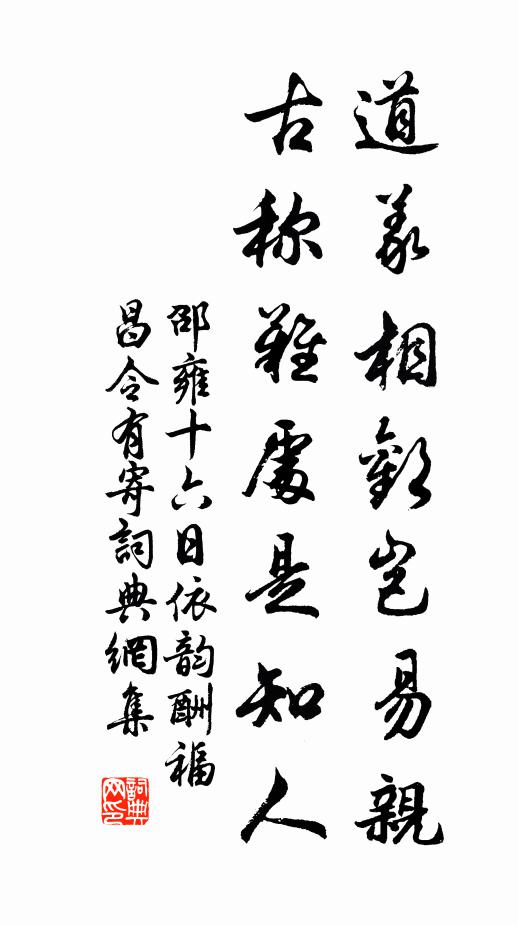 道義相歡豈易親
古称難處是知人
邵雍十六日依韵酬福
昌令有寄詞典網集
詞典
网印